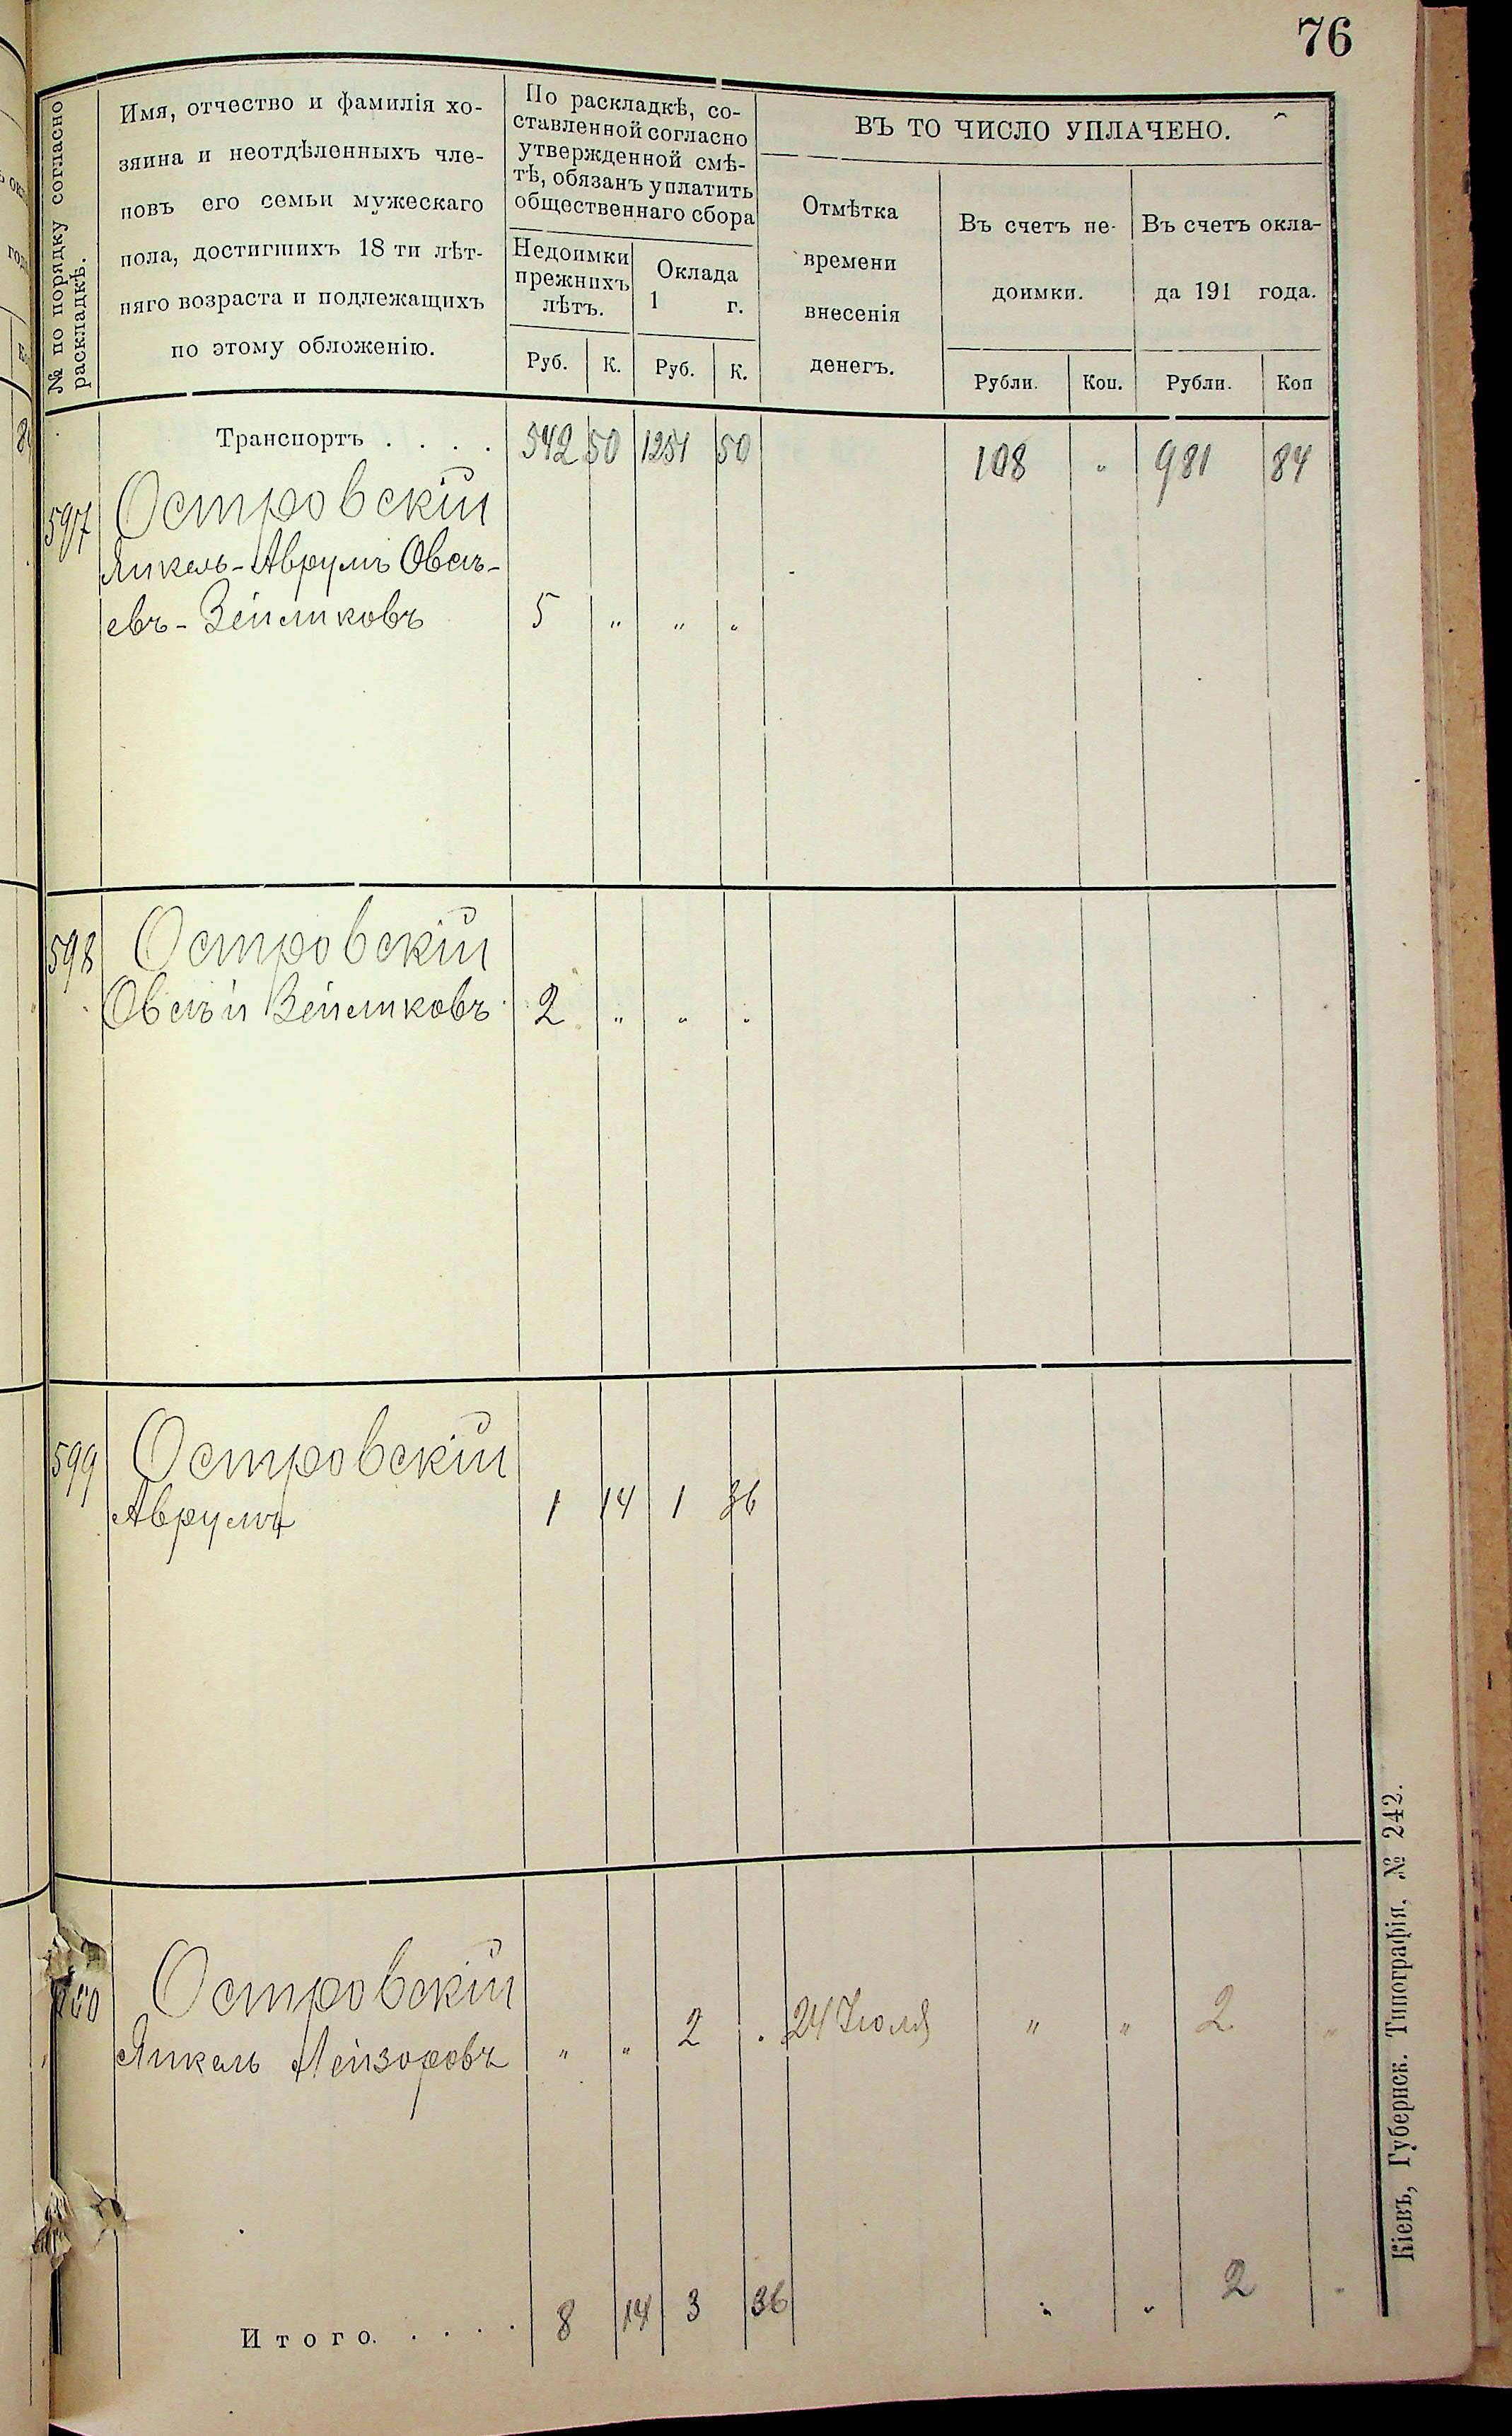 76
№ по порядку согласно
раскладкѣ.
Имя, отчество и фамилія хо-
зяина и неотдѣленныхъ чле-
новъ его семьи мужескаго
пола, достигшихъ 18 ти лѣт-
няго возраста и подлежащихъ
по этому обложенію.
По раскладкѣ, со-
ставленной согласно
утвержденной смѣ-
тѣ, обязанъ уплатить
общественнаго сбора
Недоимки
прежнихъ
лѣтъ.
Оклада
1 г.
Руб. К. Руб. К.
ВЪ ТО ЧИСЛО УПЛАЧЕНО.
Отмѣтка
времени
внесенія
денегъ.
Въ счетъ не-
доимки.
Въ счетъ окла-
да 191 года.
Рубли. Коп. Рубли. Коп
Транспортъ . . . . 542 50 1251 50 108 " 981 84
597 Островскій
Янкель-Аврумъ Овсѣ-
евъ-Зейликовъ 5 " " "
598 Островскій
Овсѣй Зейликовъ 2 " " "
599 Островскій
Аврумъ 1 14 1 36
600 Островскій
Янкель Лейзоровъ " " 2 . 24 Іюля " " 2 "
Итого. . . . . 8 14 3 36 " " 2 "
Кіевъ, Губернск. Типографія, № 242.